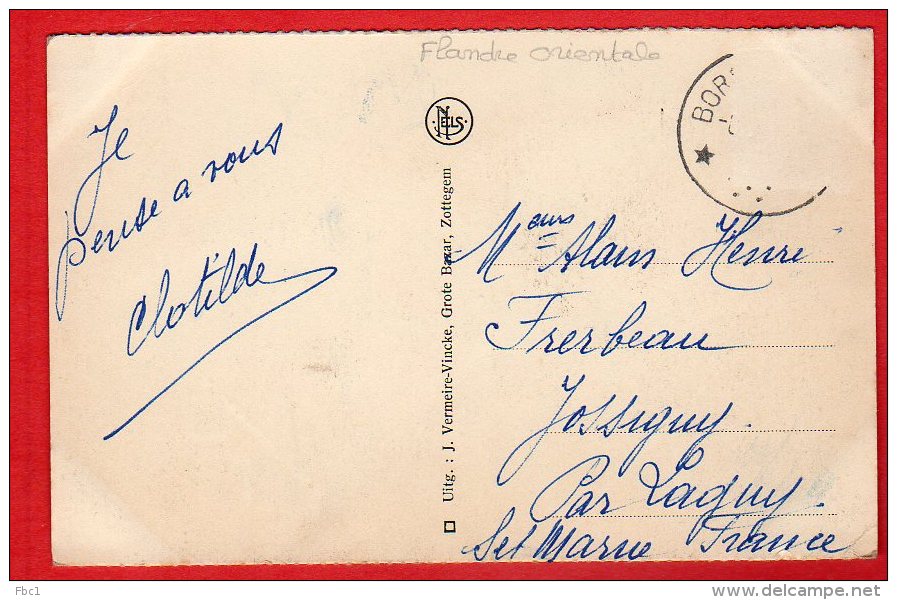 Flandre orientale
BOR
NELS
Je
pense a vous
Clotilde
Uitg. : J. Vermeire-Vincke, Grote Bazar, Zottegem
Meurs Alain Henri
Frerbeau
Jossigny
Par Lagny
Set Marne France
Fbc1
www.delcampe.net